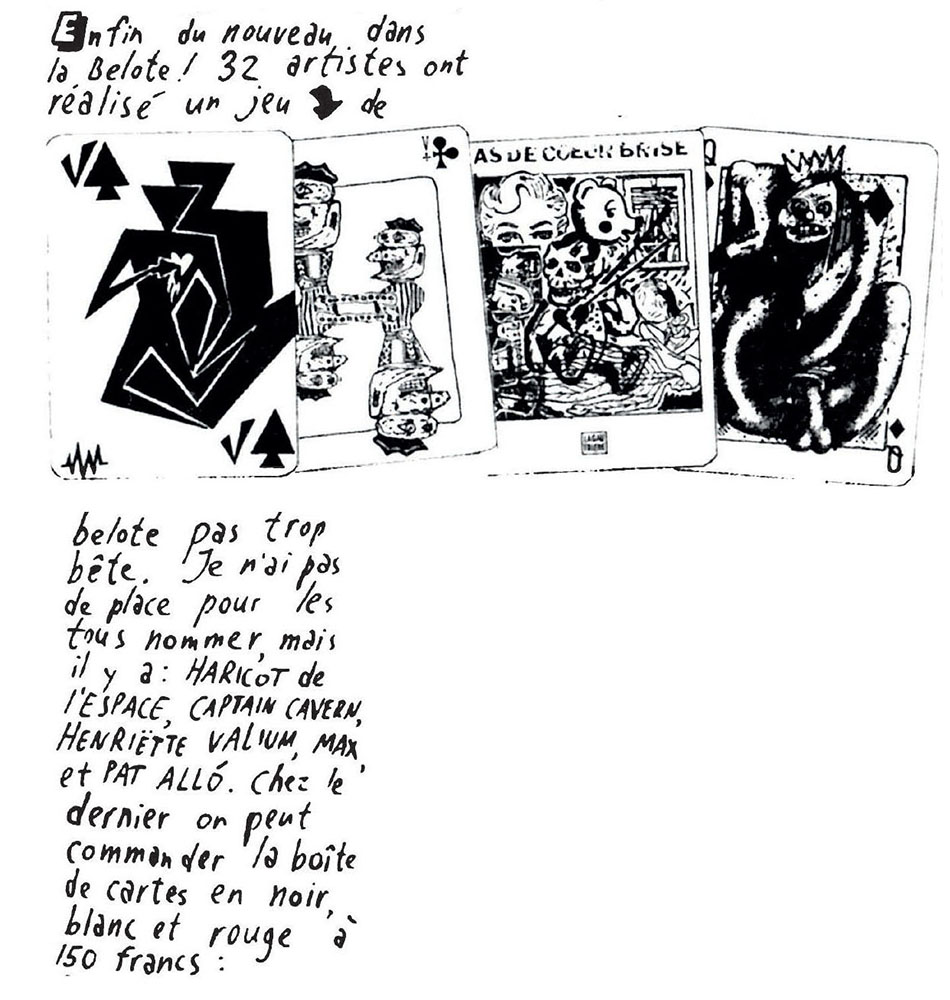 Enfin du nouveau dans
la Belote! 32 artistes ont
réalisé un jeu de
V
V
AS DE COEUR BRISE
Q
V
Q
belote pas trop
bête. Je n'ai pas
de place pour les
tous nommer, mais
il y a: HARICOT de
l'ESPACE, CAPTAIN CAVERN,
HENRIËTTE VALIUM, MAX
et PAT ALLÓ. Chez le
dernier on peut
commander la boîte
de cartes en noir,
blanc et rouge à
150 francs :